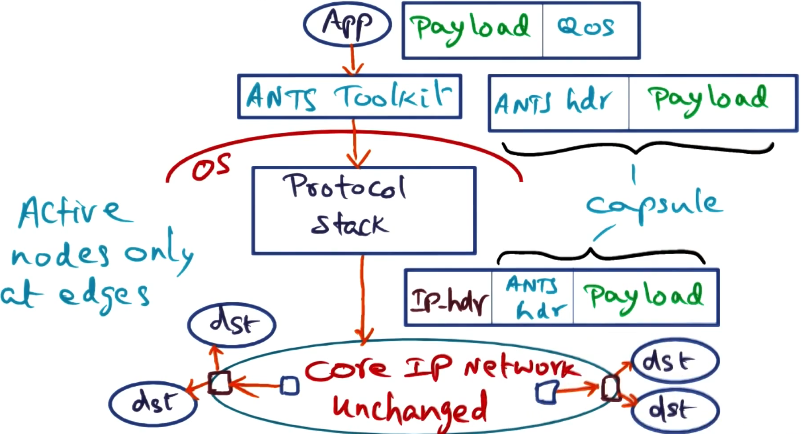 App
Payload QoS
ANTS Toolkit
ANTS hdr Payload
OS
Protocol
stack
capsule
Active
nodes only
at edges
IP-hdr ANTS
hdr Payload
dst
dst
core IP Network
unchanged
dst
dst